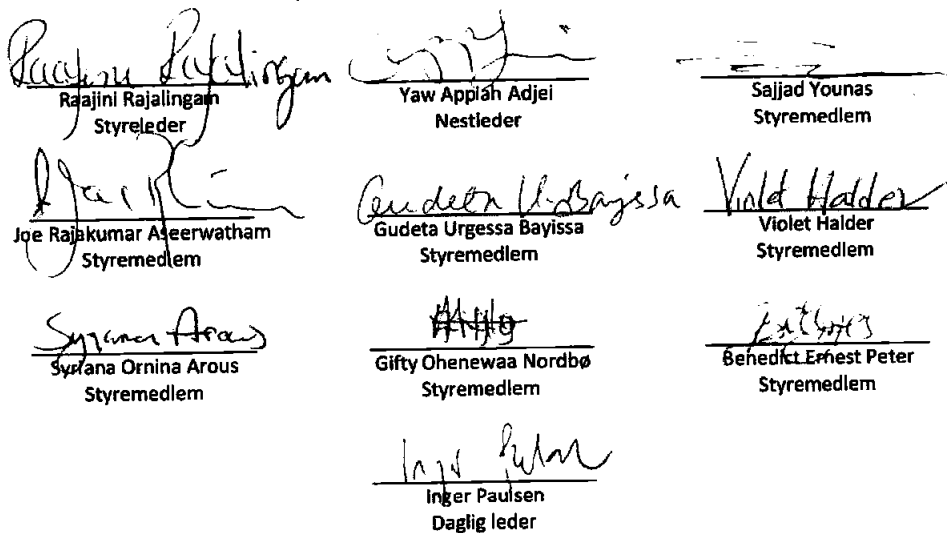 Raajini Rajalingam
Raajini Rajalingam
Styreleder
Yaw Appiah Adjei
Nestleder
Sajjad Younas
Styremedlem
Joe Rajakumar Aseerwatham
Styremedlem
Gudeta U. Bayissa
Gudeta Urgessa Bayissa
Styremedlem
Violet Halder
Violet Halder
Styremedlem
Syriana Arous
Syriana Ornina Arous
Styremedlem
Gifty Ohenewaa Nordbø
Styremedlem
Benedict Ernest Peter
Styremedlem
Inger Paulsen
Daglig leder